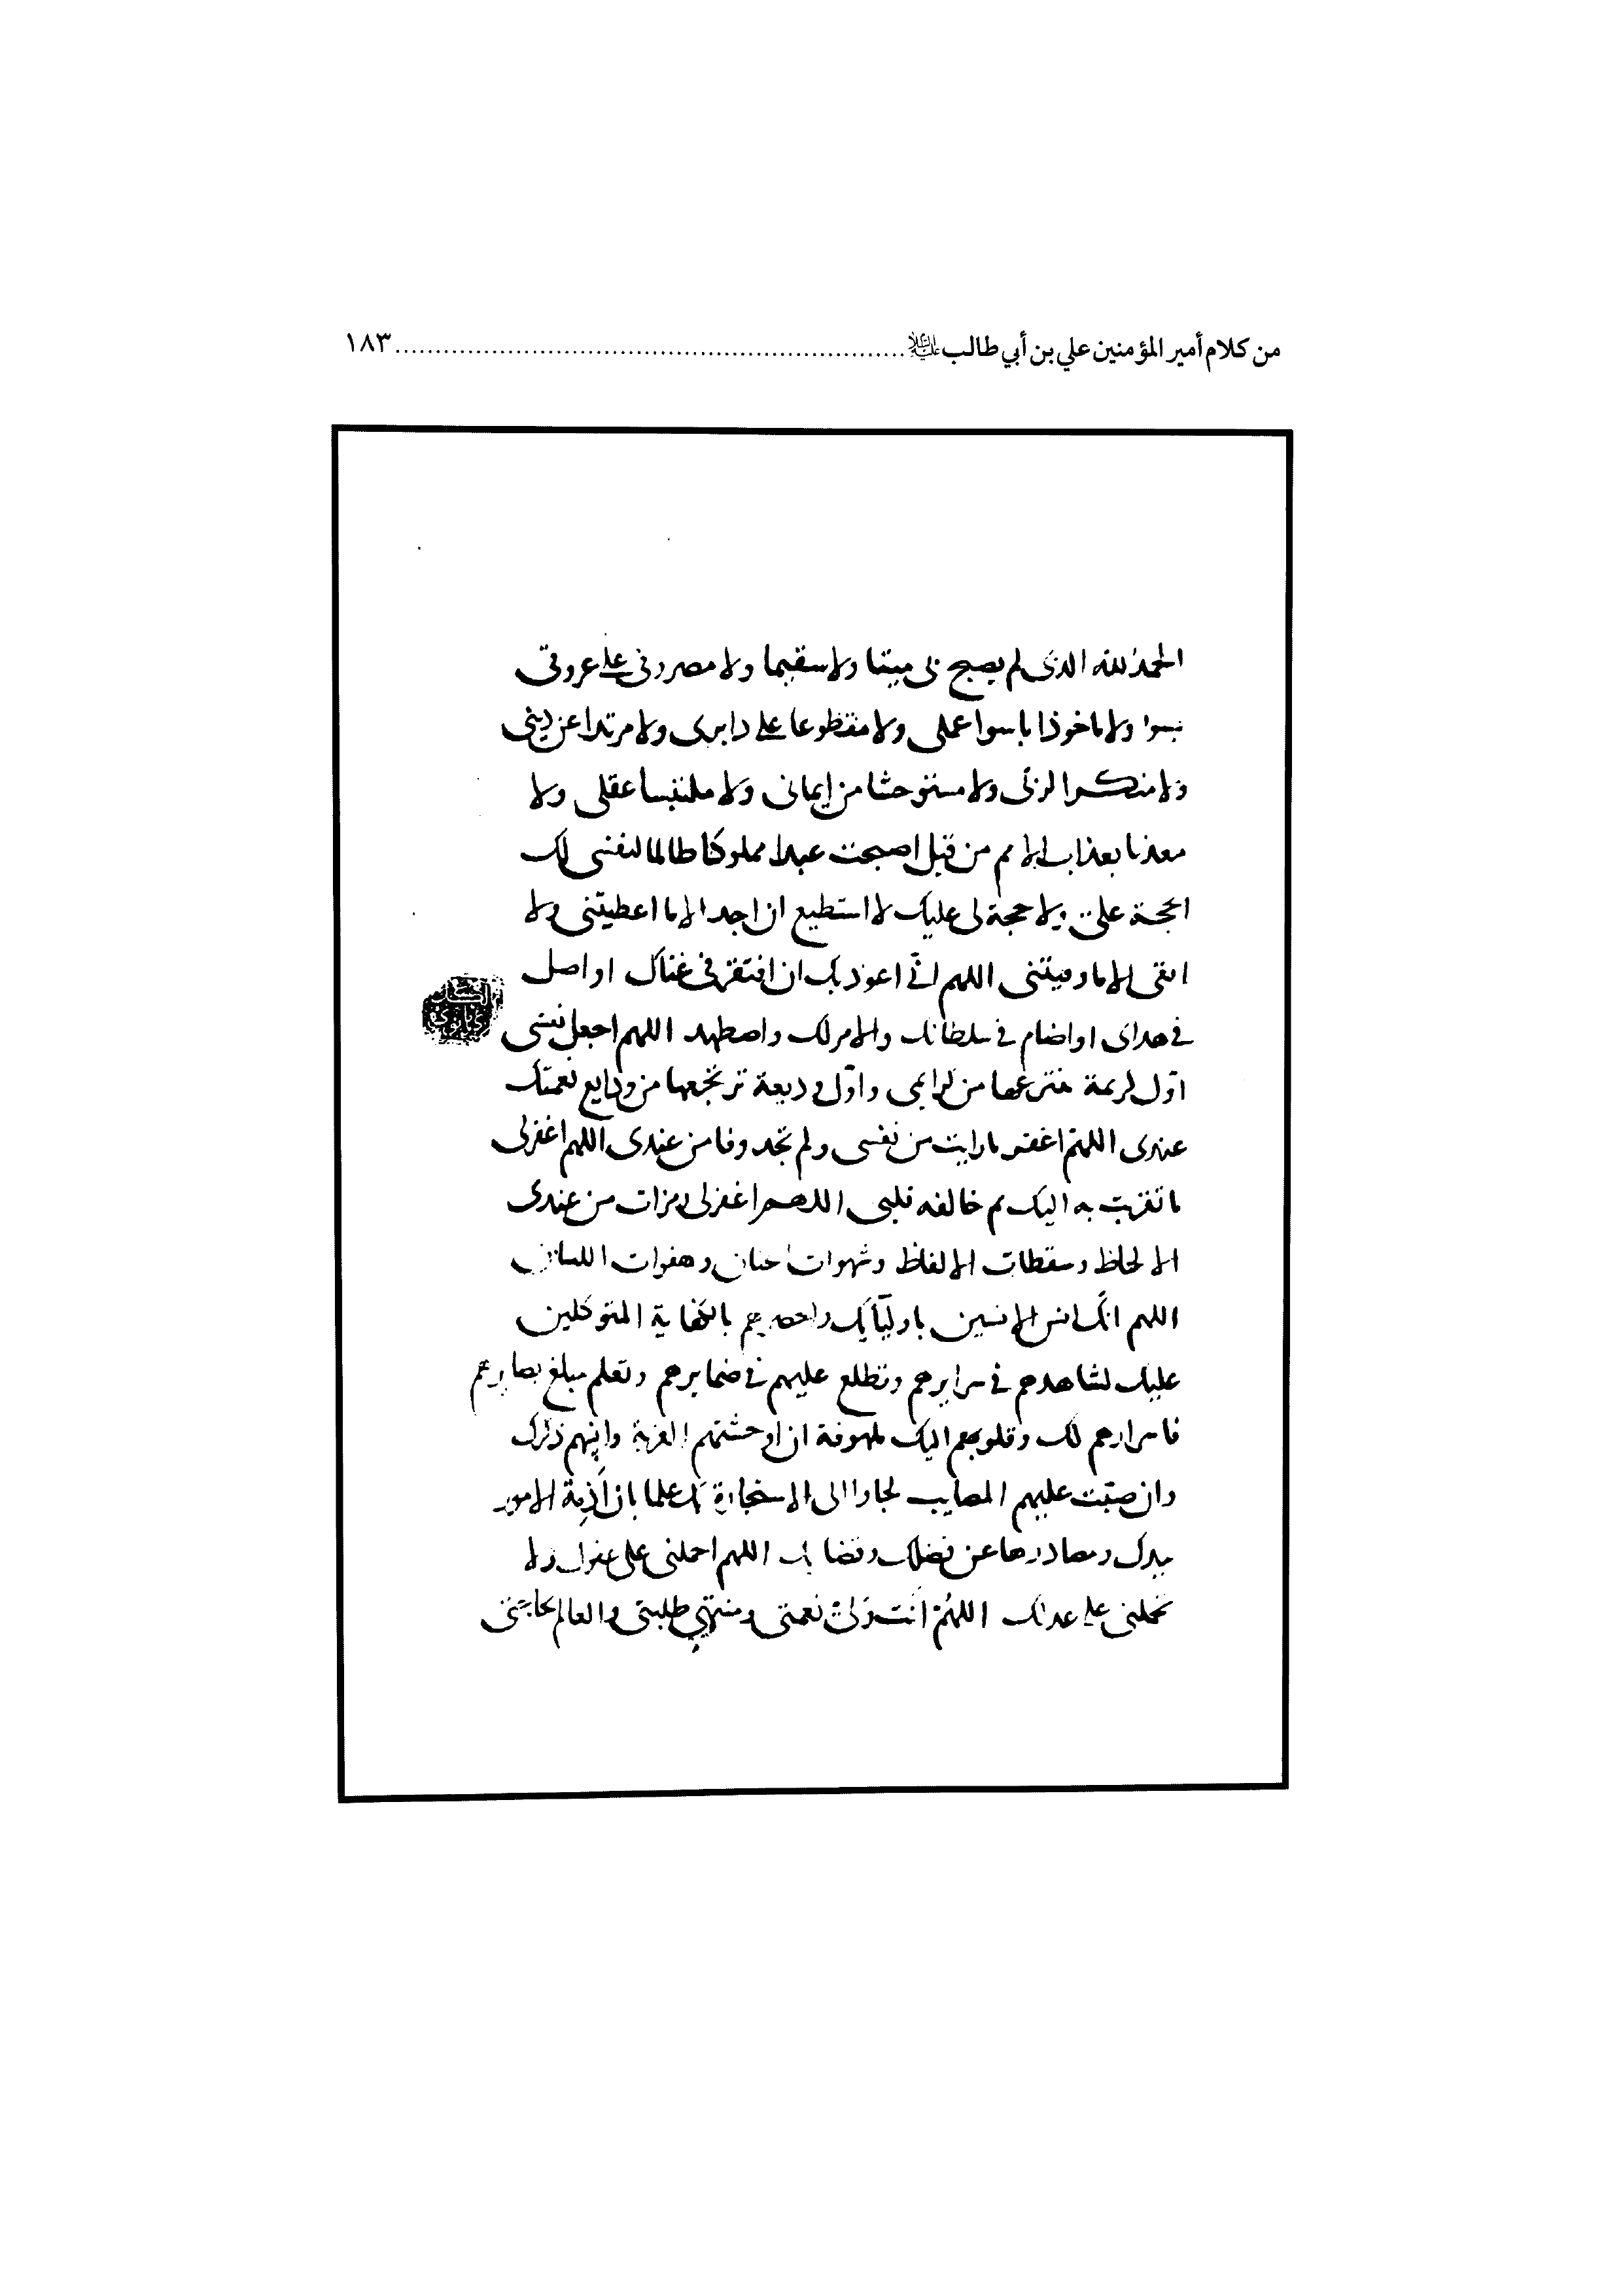 من كلام أمير المؤمنين علي بن أبي طالب عليه السلام ........ ١٨٣
الحمد لله الذى لم يصبح بى ميتا ولا سقيما ولا مضروبى على عروقى
بسوا ولا ماخوذا باسوا عملى ولا مقطوعا على دابرى ولا مرتدا عن دينى
ولا منكرا لربى ولا مستوحشا من إيمانى ولا ملتبسا عقلى ولا
معذبا بعذاب الامم من قبل اصبحت عبدا مملوكا ظالما لنفسى لك
الحجة على ولا حجة لى عليك لا استطيع ان اجد الا ما اعطيتنى ولا
اتقى الا ما وقيتنى اللهم انى اعوذ بك ان افتقر فى غناك او اضل
فى هداى او اضام فى سلطانك والامر لك واضطهد اللهم اجعل نفسى
اول كريمة تنتزعها من كرايمى واول وديعة ترتجعها من ودايع نعمتك
عندى اللهم اغفر ما رايت من نفسى ولم تجد وفا من عندى اللهم اغفر لى
ما تقربت به اليك ثم خالفه قلبى اللهم اغفر لى رمزات من عندى
الا لحاظ وسقطات الالفاظ وشهوات الجنان وهفوات اللسان
اللهم انك انس الانسين باوليآيك بالكفاية المتوكلين
عليك تشاهدهم فى سرايرهم وتطلع عليهم فى ضمايرهم وتعلم مبلغ بصايرهم
فاسرارهم لك وقلوبهم اليك ملهوفة ان اوحشتهم الغربة وانهم ذكرك
وان صبت عليهم المصايب لجاوا الى الاستجارة بك علما بان أزمة الامور
بيدك ومصادرها عن قضايك اللهم احملنى على عفوك ولا
تحملنى على عدلك اللهم أنت ولى نعمتى ومنتهى طلبتى والعالم بحاجتى